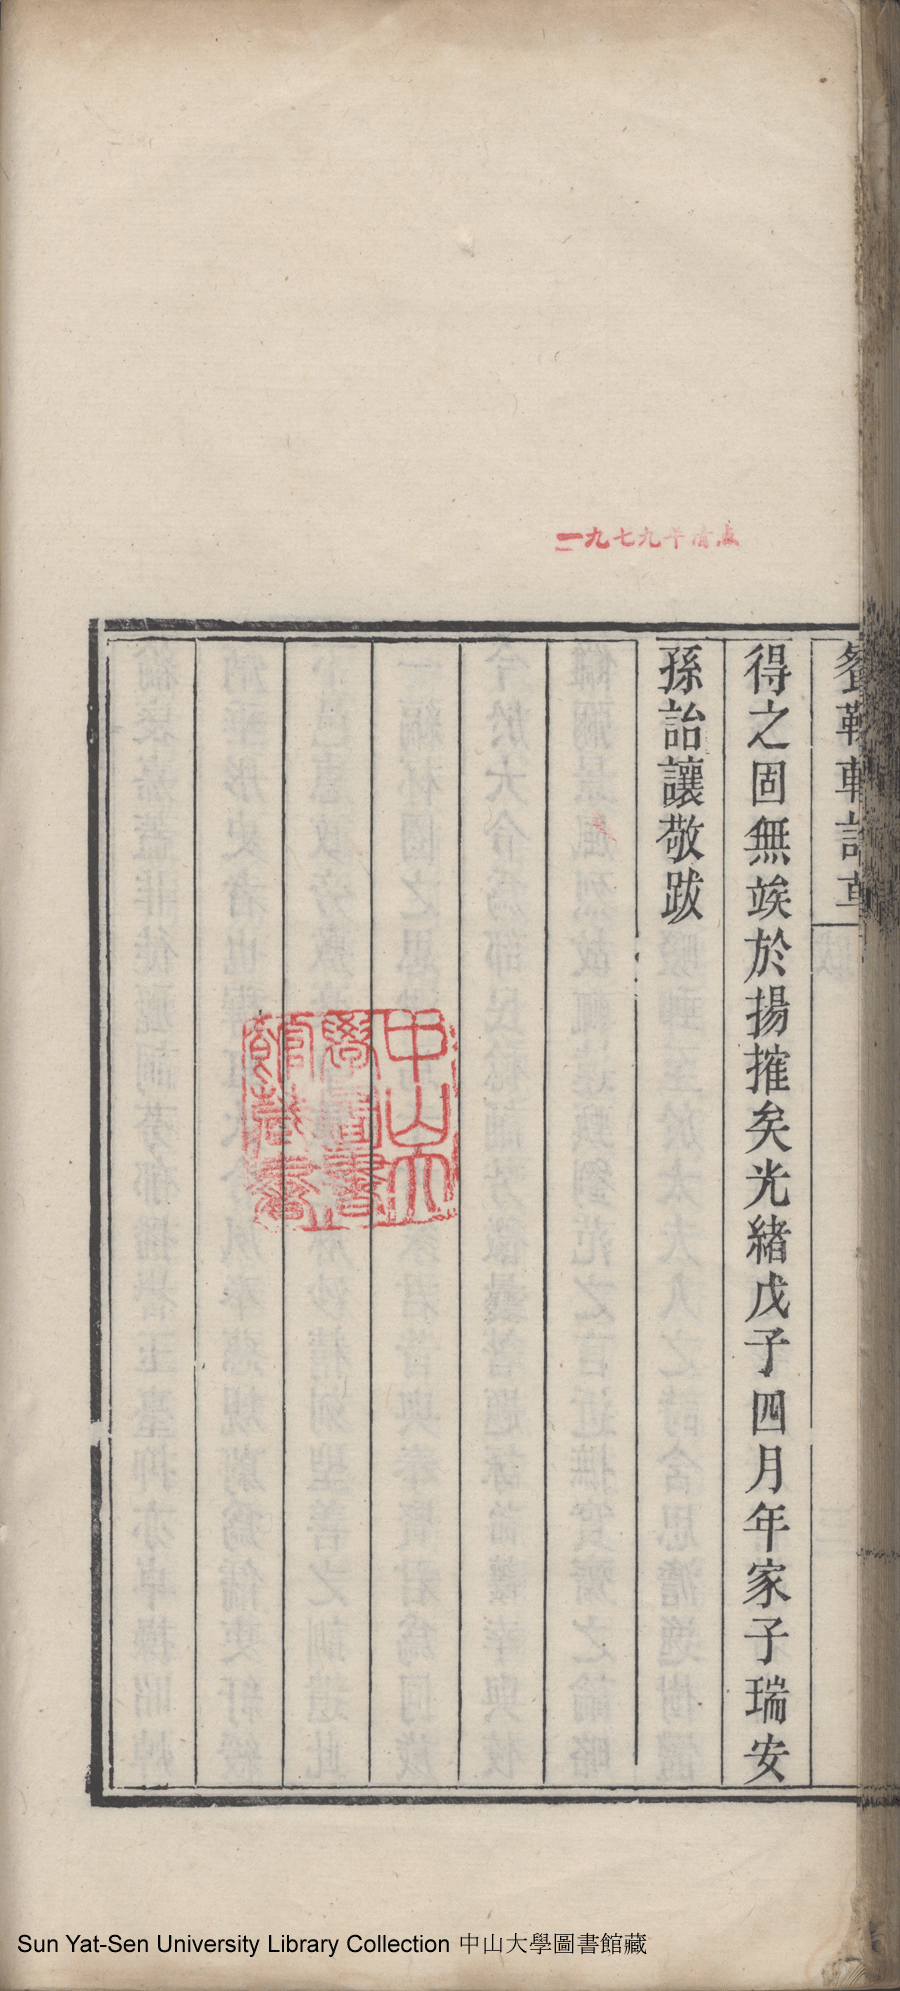 一九七九年清点
得之固無竢於揚搉矣光緒戊子四月年家子瑞安
孫詒讓敬跋
中山大
學圖書
館藏書
Sun Yat-Sen University Library Collection 中山大學圖書館藏